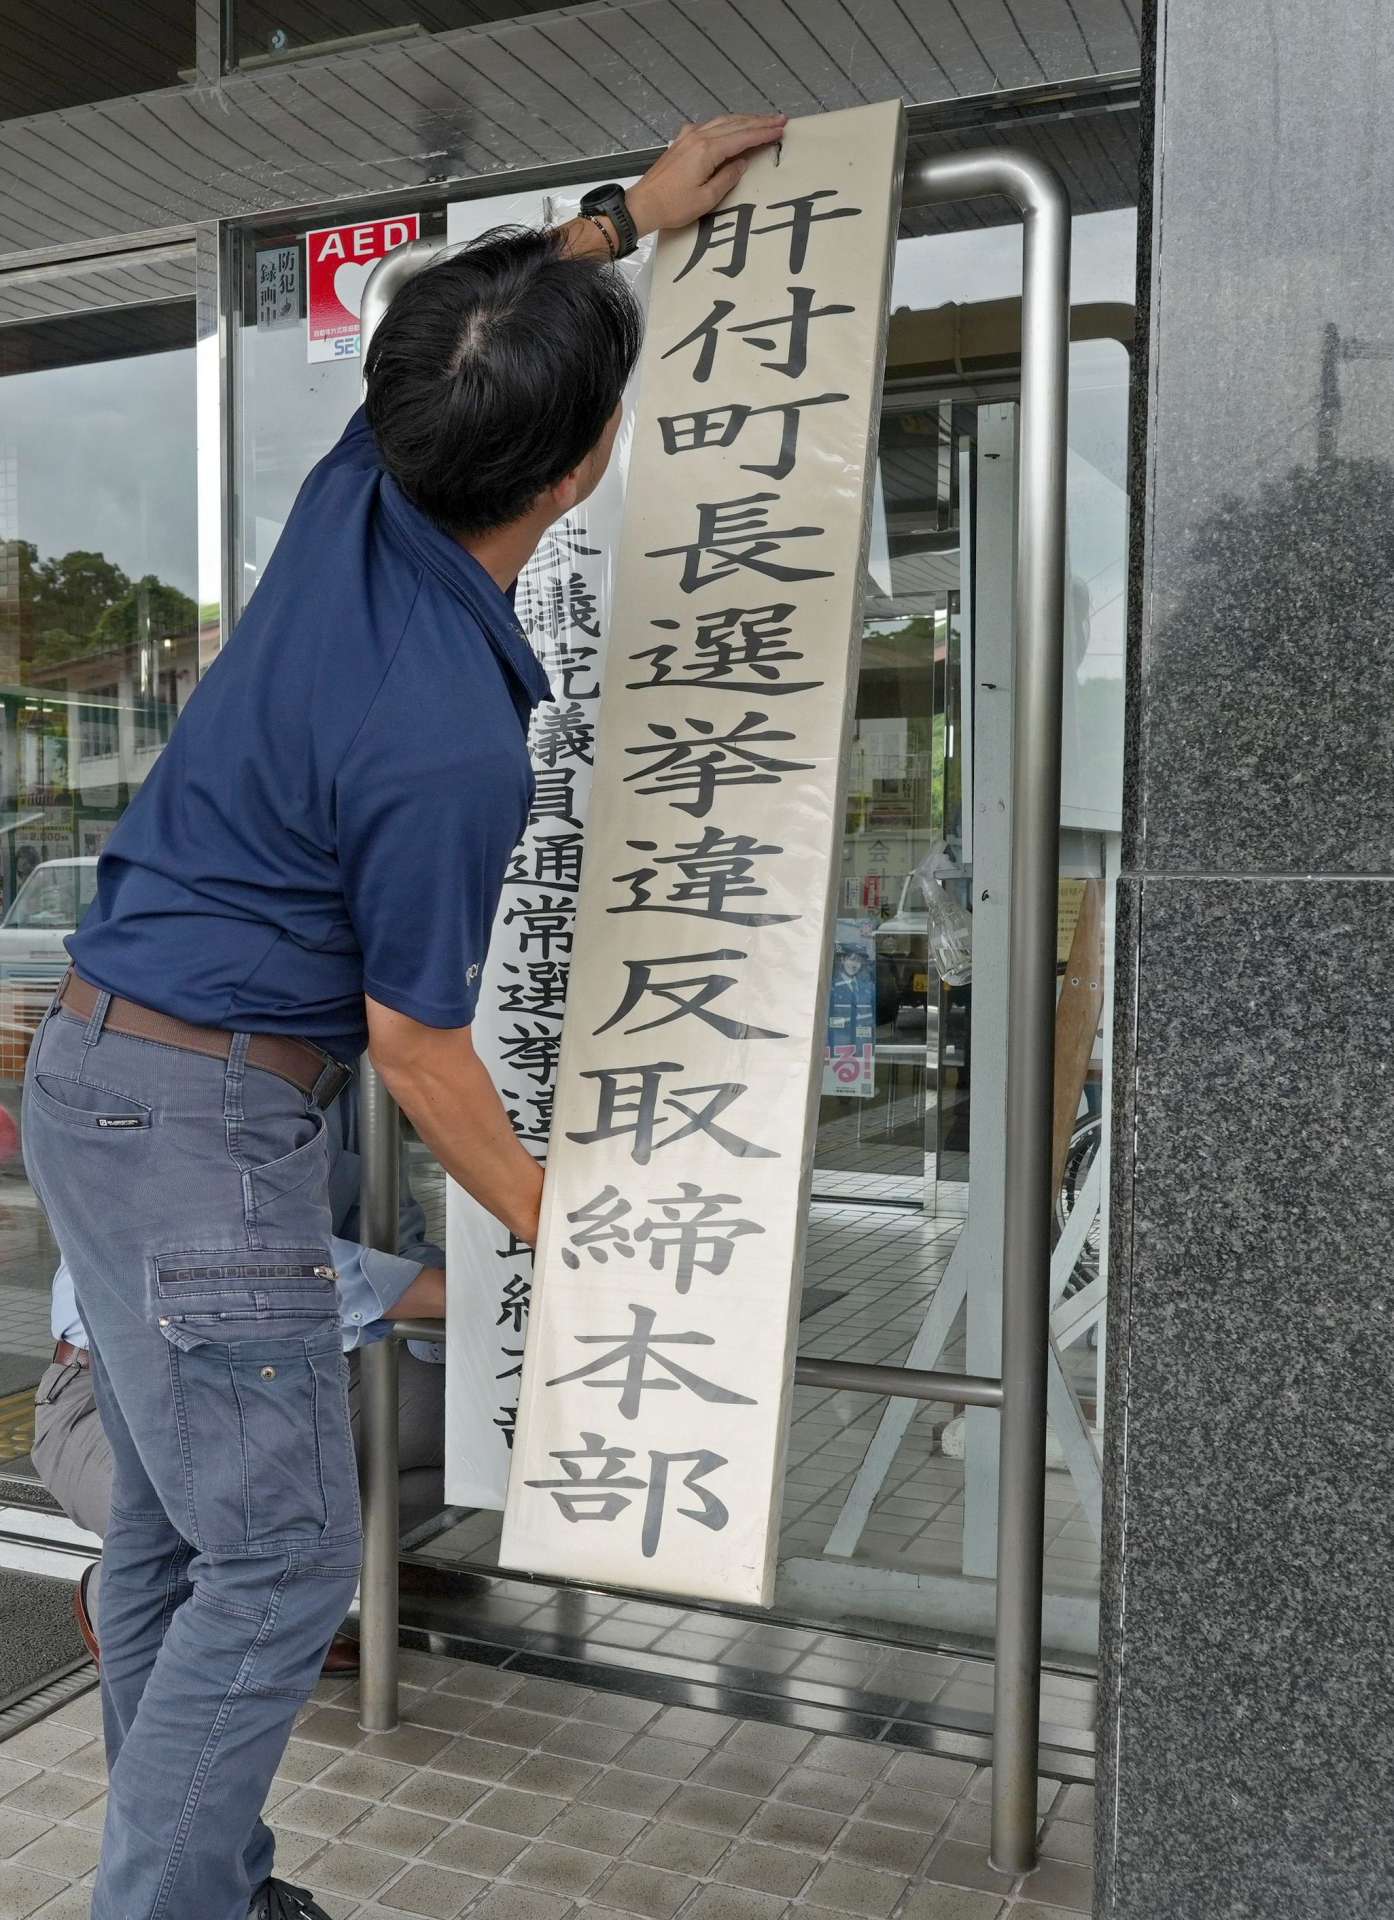 肝付町長選挙違反取締本部
参議院議員通常選挙違
取締本部
AED
防犯
録画中
SEC
GLADIATOR
会計課
る!